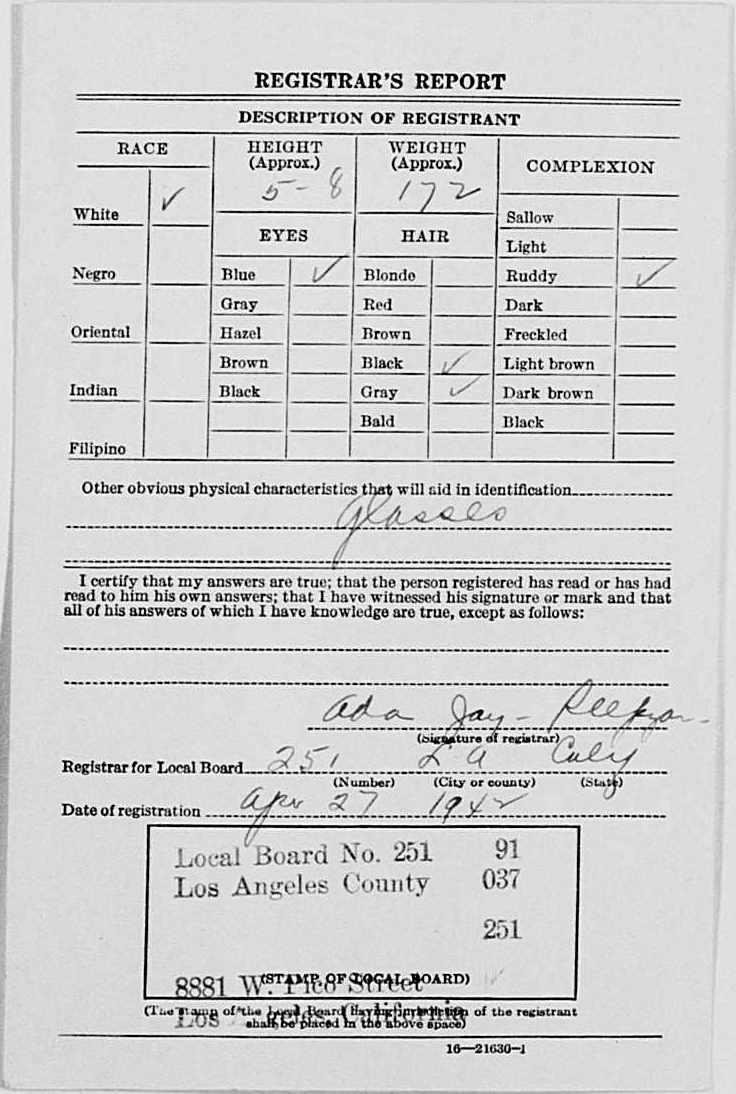 REGISTRAR'S REPORT
DESCRIPTION OF REGISTRANT
RACE
HEIGHT
(Approx.)
WEIGHT
(Approx.)
COMPLEXION
5-8
172
White ✓
EYES
HAIR
Sallow
Light
Negro
Blue ✓
Blonde
Ruddy ✓
Gray
Red
Dark
Oriental
Hazel
Brown
Freckled
Brown
Black ✓
Light brown
Indian
Black
Gray ✓
Dark brown
Bald
Black
Filipino
Other obvious physical characteristics that will aid in identification
Glasses
I certify that my answers are true; that the person registered has read or has had
read to him his own answers; that I have witnessed his signature or mark and that
all of his answers of which I have knowledge are true, except as follows:
Ada Jay
(Signature of registrar)
Registrar for Local Board 251 LA Calif
(Number) (City or county) (State)
Date of registration Apr 27 1942
Local Board No. 251 91
Los Angeles County 037
251
(STAMP OF LOCAL BOARD)
8881 W. Pico Street
(The stamp of the Local Board having jurisdiction of the registrant
Los Angeles, California
shall be placed in the above space)
16—21630-1